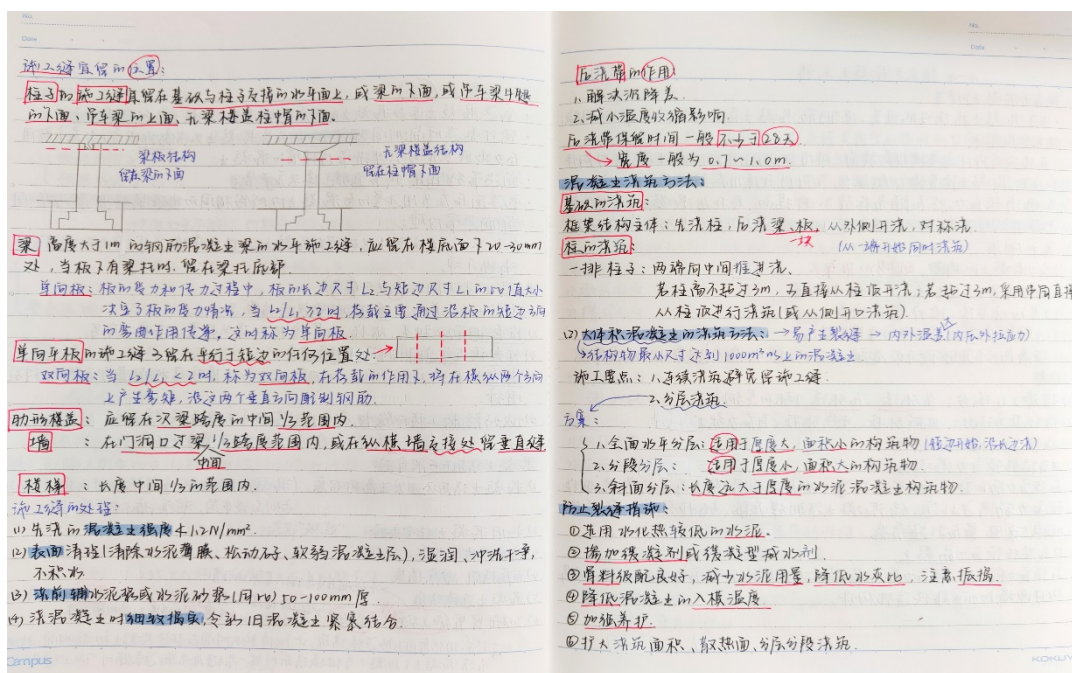 No.
Date
施工缝宜留的位置:
柱子的施工缝宜留在基础与柱子交接的水平面上,或梁的下面,或吊车梁牛腿
的下面、吊车梁的上面、无梁楼盖柱帽的下面.
梁板结构
留在梁的下面
无梁楼盖结构
留在柱帽下面
梁 高度大于1m的钢筋混凝土梁的水平施工缝,应留在楼底面下20-30mm
处,当板下有梁托时.留在梁托底部.
单向板:板的受力和传力过程中,板的长边尺寸L2与短边尺寸L1的比值大小
决定了板的受力情况,当L2/L1≥2时,荷载主要通过沿板的短边方向
的弯曲作用传递,这时称为单向板.
单向平板的施工缝可留在平行于短边的任何位置处.
双向板:当L2/L1<2时,称为双向板,在荷载的作用下,将在横纵两个方向
上产生弯矩,沿这两个垂直方向配制钢筋.
肋形楼盖:应留在次梁跨度的中间1/3范围内.
墙 :在门洞口过梁1/3跨度范围内,或在纵横墙交接处留垂直缝
中间
楼梯:长度中间1/3的范围内.
施工缝的处理:
(1)先浇的混凝土强度≮1.2N/mm².
(2)表面清理(清除水泥薄膜、松动石、软弱混凝土层),湿润、冲洗干净,
不积水
(3)浇前铺水泥浆或水泥砂浆(同 )50-100mm厚.
(4)浇混凝土时细致捣实,令新旧混凝土紧密结合.
Campus
No.
Date
后浇带的作用:
1.解决沉降差.
2.减小温度收缩影响.
后浇带保留时间一般不少于28天
宽度一般为0.7~1.0m.
混凝土浇筑方法:
基础的浇筑:
框架结构主体:先浇柱,后浇梁、板,从外侧开浇,对称浇.
一块 (从一端开始同时浇筑)
柱的浇筑:
一排柱子:两端向中间推进浇.
若柱高不超过3m,可直接从柱顶开浇;若超过3m,采用串筒直接
从柱顶进行浇筑(或从侧开口浇筑).
(2)大体积混凝土的浇筑方法:→易产生裂缝→内外温差(内压外拉应力)
结构物最小尺寸达到1000m³以上的混凝土
施工要点:1.连续浇筑避免留施工缝.
2.分层浇筑.
方案:
1.全面水平分层:适用于厚度大,面积小的构筑物(短边开始,沿长边浇)
2.分段分层:适用于厚度小,面积大的构筑物.
3.斜面分层:长度远大于厚度的水泥混凝土构筑物.
防止裂缝措施:
①选用水化热较低的水泥.
②增加缓凝剂或缓凝型减水剂.
③骨料级配良好,减少水泥用量,降低水灰比,注意振捣.
④降低混凝土的入模温度.
⑤加强养护.
⑥扩大浇筑面积、散热面、分层分段浇筑.
KOKUY